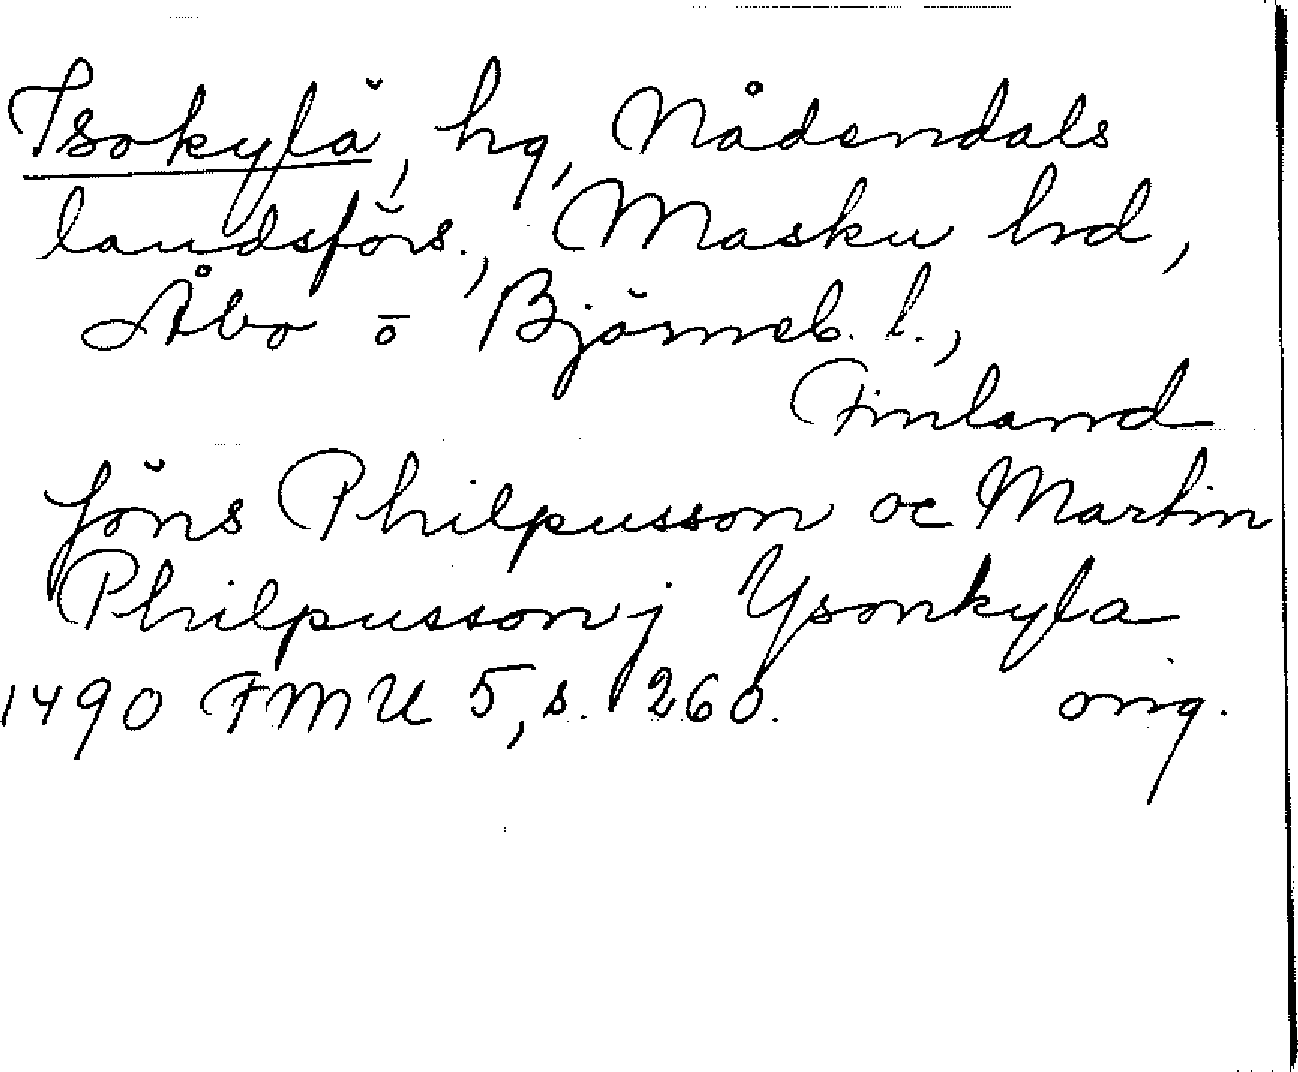 Isokylä, hg, Nådendals
landsförs., Masku hrd,
Åbo o Björneb. l.,
Finland
Jöns Philpusson oc Martin
Philpusson j Ysonkyla
1490 FMU 5, s. 260. orig.